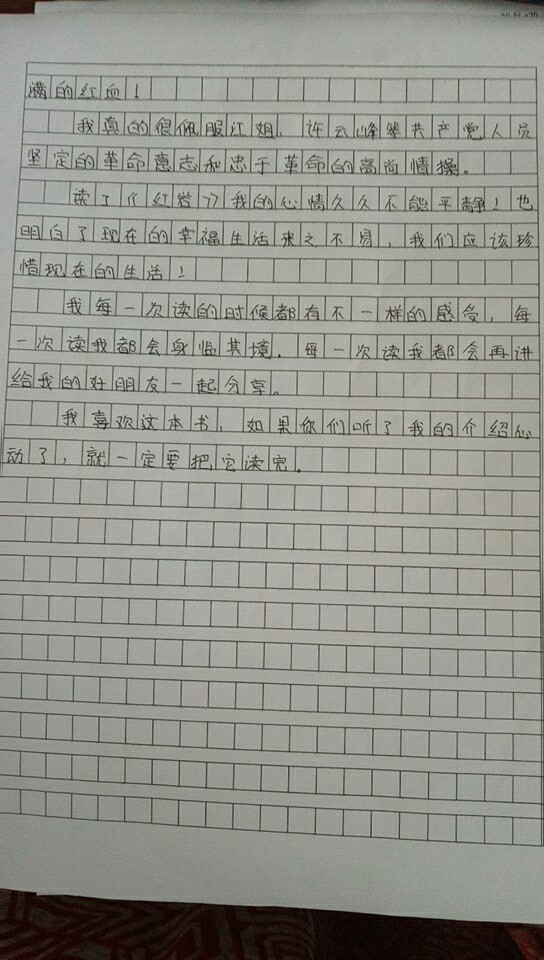 满的红血！
我真的很佩服江姐、许云峰等共产党人员
坚定的革命意志和忠于革命的高尚情操。
读了《红岩》我的心情久久不能平静！也
明白了现在的幸福生活来之不易，我们应该珍
惜现在的生活！
我每一次读的时候都有不一样的感受，每
一次读我都会身临其境，每一次读我都会再讲
给我的好朋友一起分享。
我喜欢这本书，如果你们听了我的介绍心
动了，就一定要把它读完。